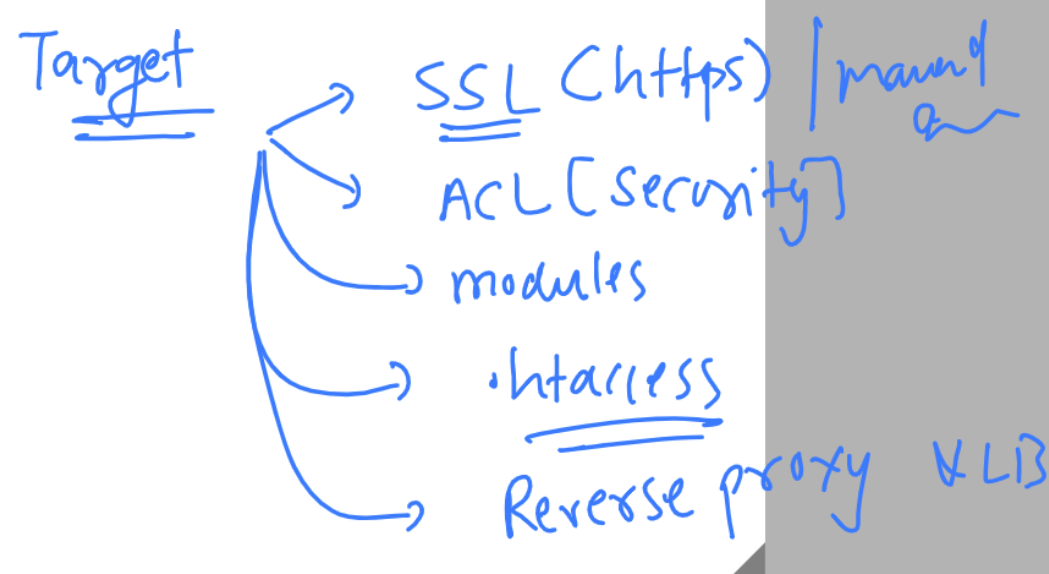 Target
SSL (https) |
ACL [security]
modules
.htaccess
Reverse proxy & LB